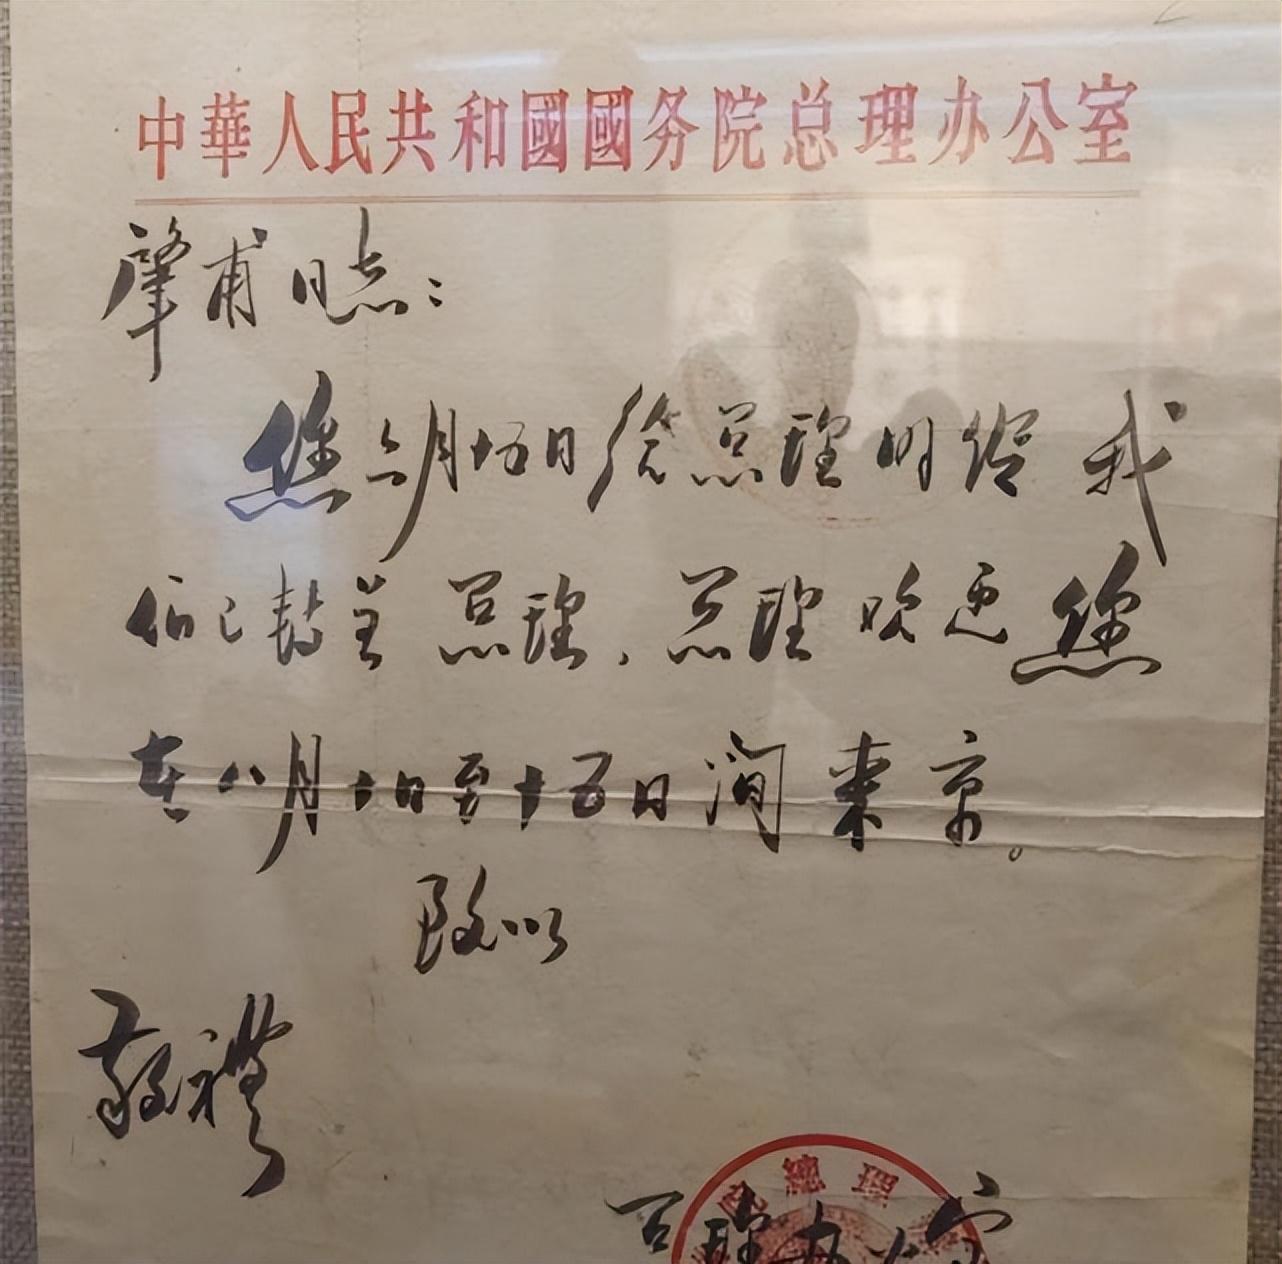 中華人民共和國國务院总理办公室
肇甫同志：
您六月十五日给总理的信我
们已转呈总理，总理欢迎您
在八月十日至十五日间来京。
致以
敬禮
總理
总理办公室